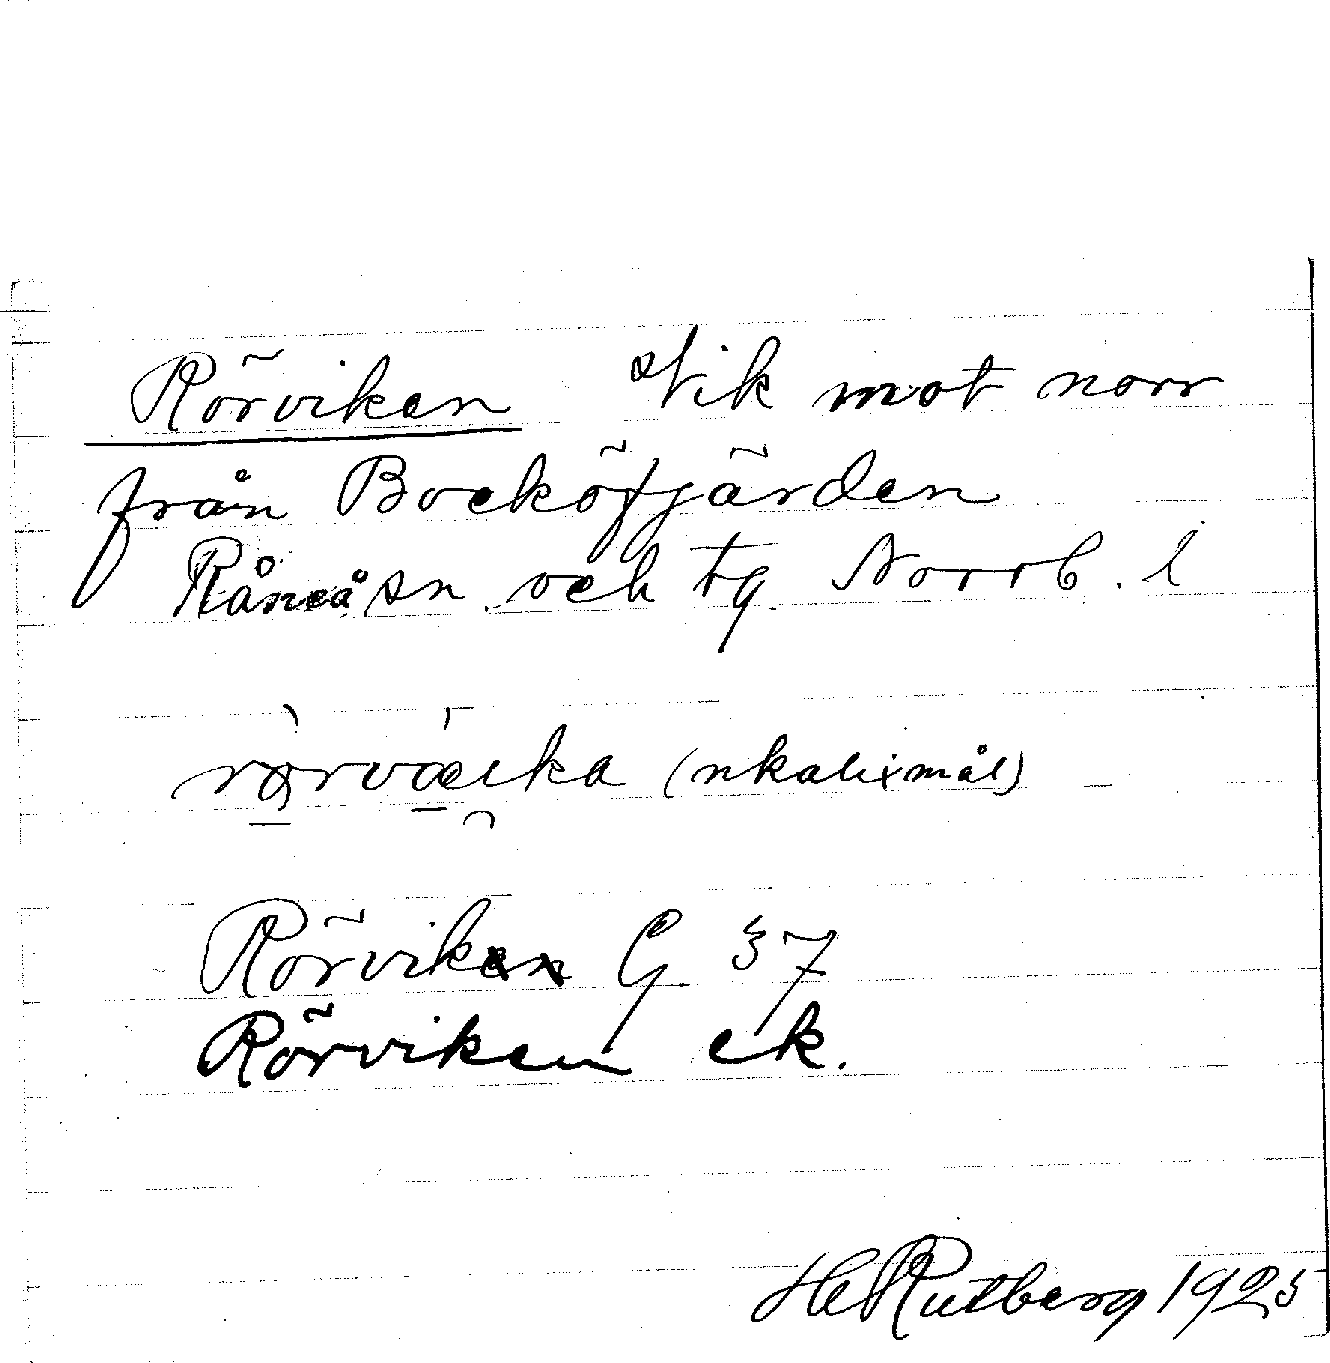 Rörviken Vik mot norr
från Bocköfjärden
Råneå sn och tg. Norrb. l
(nkalixmål)
Rörviken G 57
Rörviken ek.
HeRutberg 1925